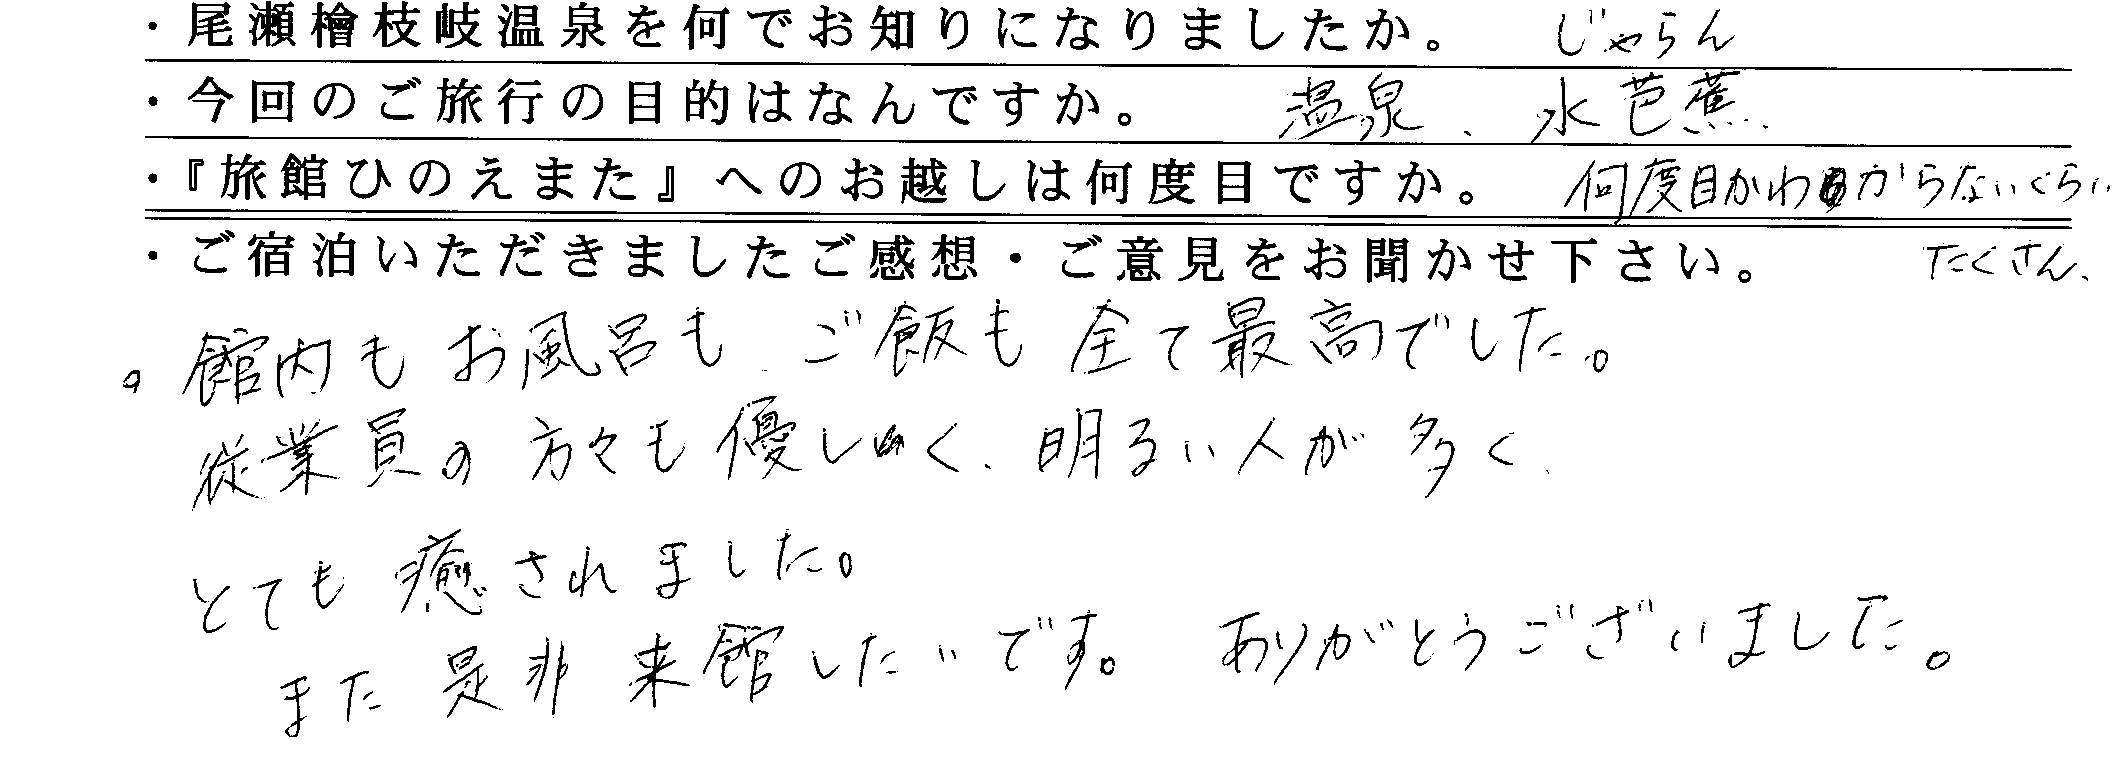 ・尾瀬檜枝岐温泉を何でお知りになりましたか。 じゃらん
・今回のご旅行の目的はなんですか。 温泉、水芭蕉
・『旅館ひのえまた』へのお越しは何度目ですか。 何度目かわからないくらい
・ご宿泊いただきましたご感想・ご意見をお聞かせ下さい。 たくさん、
。館内もお風呂も、ご飯も全て最高でした。
従業員の方々も優しく、明るい人が多く、
とても癒されました。
また是非来館したいです。ありがとうございました。